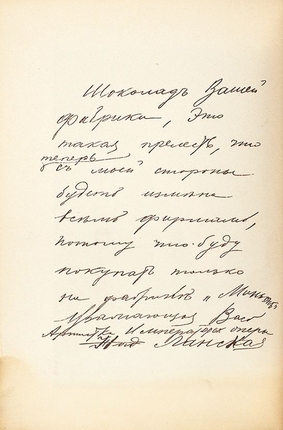 Шоколадъ Вашей
фабрики, Это
такая прелесть, что
теперь
съ моей стороны
будетъ измена
всемъ фирмамъ,
потому что буду
покупать только
на фабрике „
Уважающая Васъ
Артистка Императ оперы
Линская